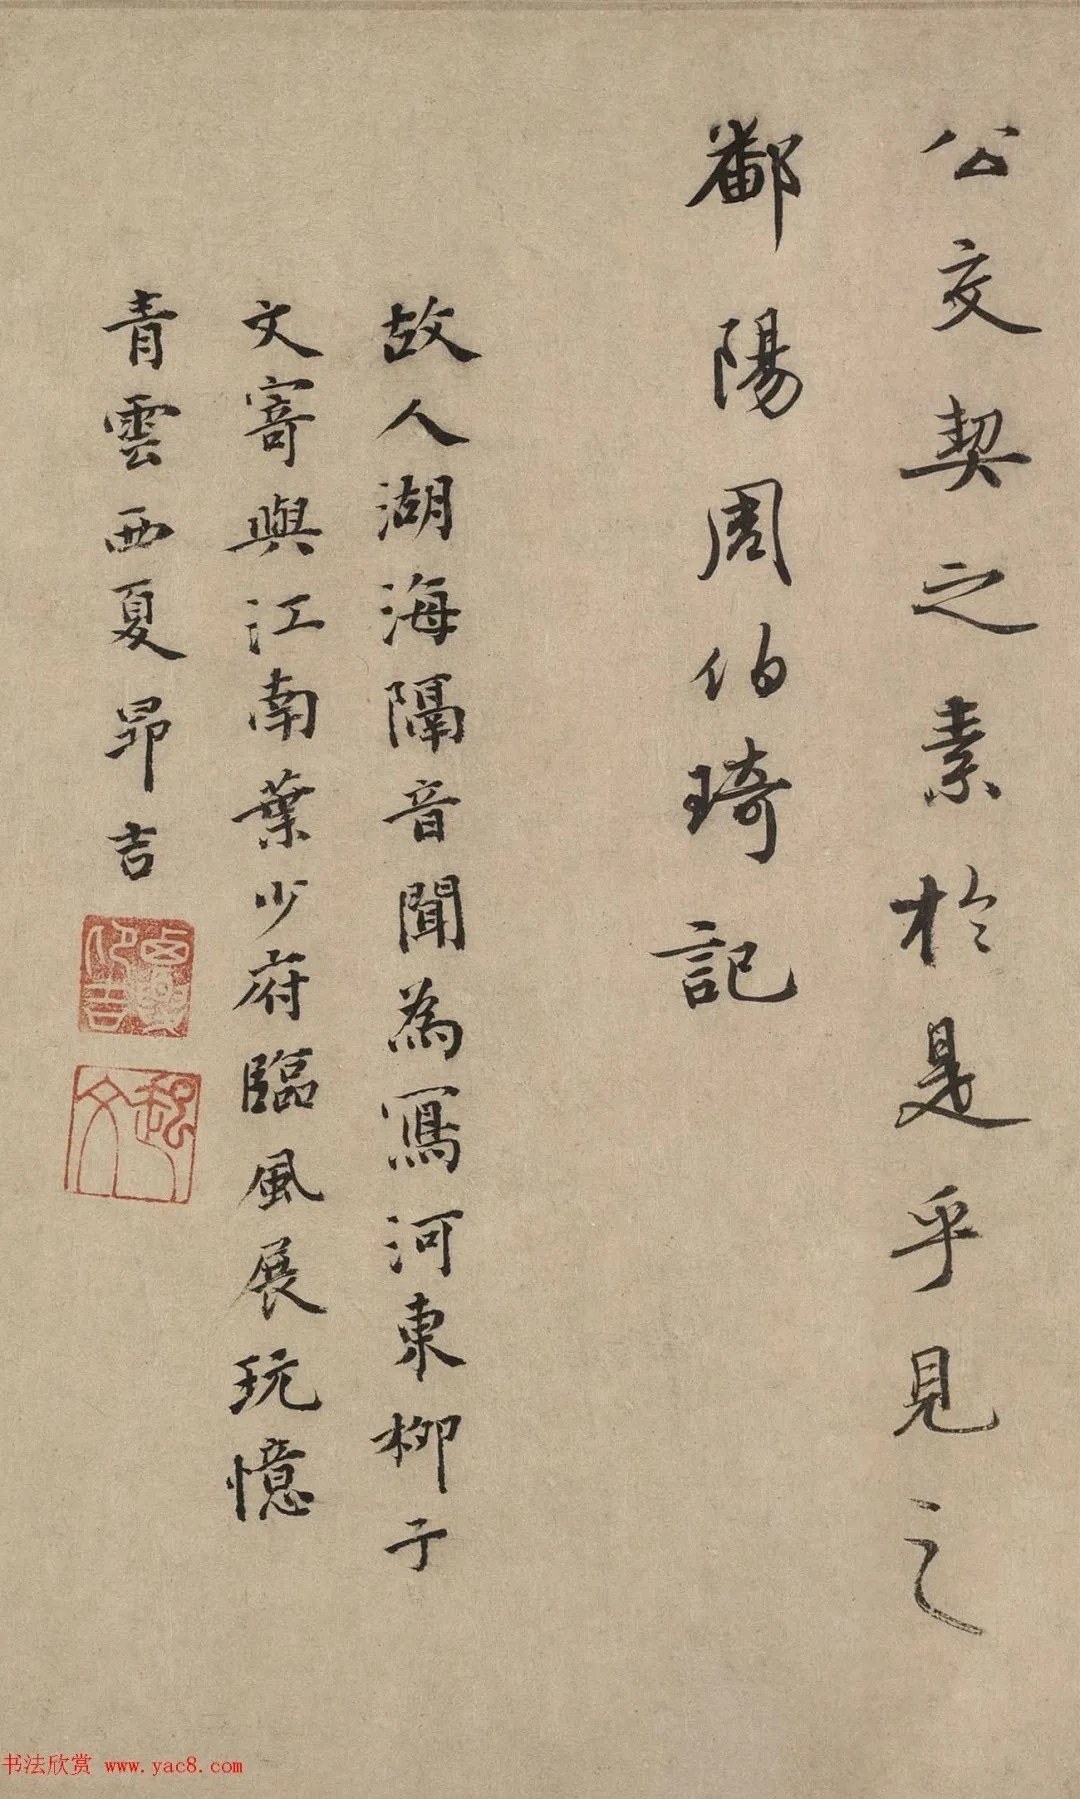 公交契之素於是乎見之
鄱陽周伯琦記
故人湖海隔音聞為寫河東柳子
文寄與江南葉少府臨風展玩憶
青雲西夏昂吉
书法欣赏 www.yac8.com